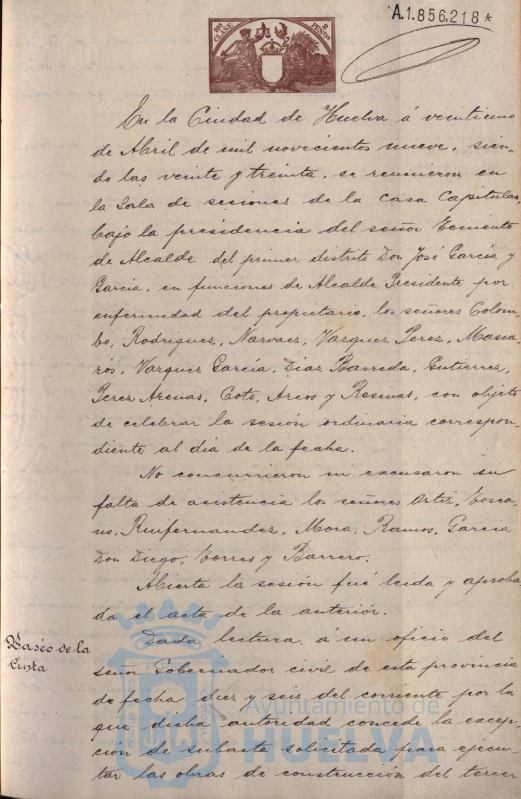 A.1.856,218*
10ª CLASE
2 PESTAS
En la Ciudad de Huelva á veintiuno
de Abril de mil novecientos nueve, sien-
do las veinte y treinta, se reunieron en
la Sala de sesiones de la casa Capitular,
bajo la presidencia del señor Teniente
de Alcalde del primer distrito Don José García y
García, en funciones de Alcalde Presidente por
enfermedad del propietario, los señores Colom-
bo, Rodriguez, Narvaez, Vazquez Perez, Masca-
rós, Vazquez García, Diaz Barreda, Gutierrez,
Perez Arenas, Coto, Arcos y Rosinas, con objeto
de celebrar la sesión ordinaria correspon-
diente al día de la fecha.
No concurrieron ni excusaron su
falta de asistencia los señores Ortiz, Tosca-
no, Ruifernandez, Mora, Ramos, García
Don Diego, Torres y Barrero.
Abierta la sesión fué leida y aproba-
da el acta de la anterior.
Paseo de la
Cinta
Dada lectura á un oficio del
señor Gobernador civil de esta provincia
de fecha diez y seis del corriente por la
que dicha autoridad concede la excep-
ción de subasta solicitada para ejecu-
tar las obras de construcción del tercer
Ayuntamiento de
HUELVA